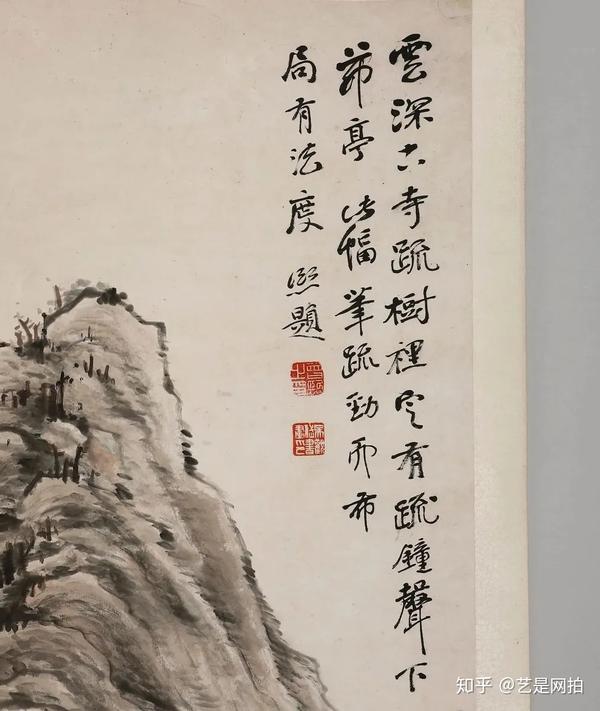 雲深古寺疏樹裡定有疏鐘聲下
茆亭 此幅筆疏勁而布
局有法度 熙題
曾熙之印
知乎 @艺是网拍